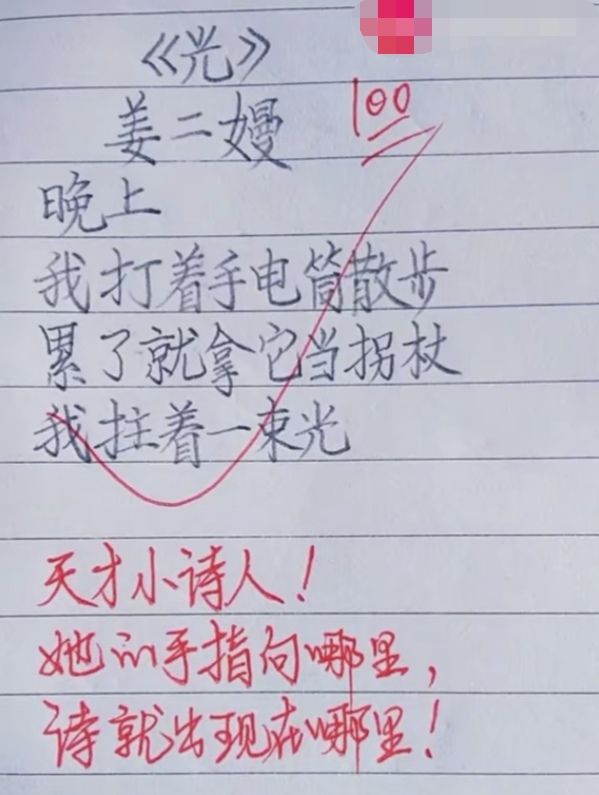 《光》
姜二嫚
100
晚上
我打着手电筒散步
累了就拿它当拐杖
我拄着一束光
天才小诗人!
她的手指向哪里,
诗就出现在哪里!